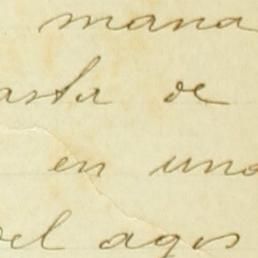 mana
asta de
en una
del ages